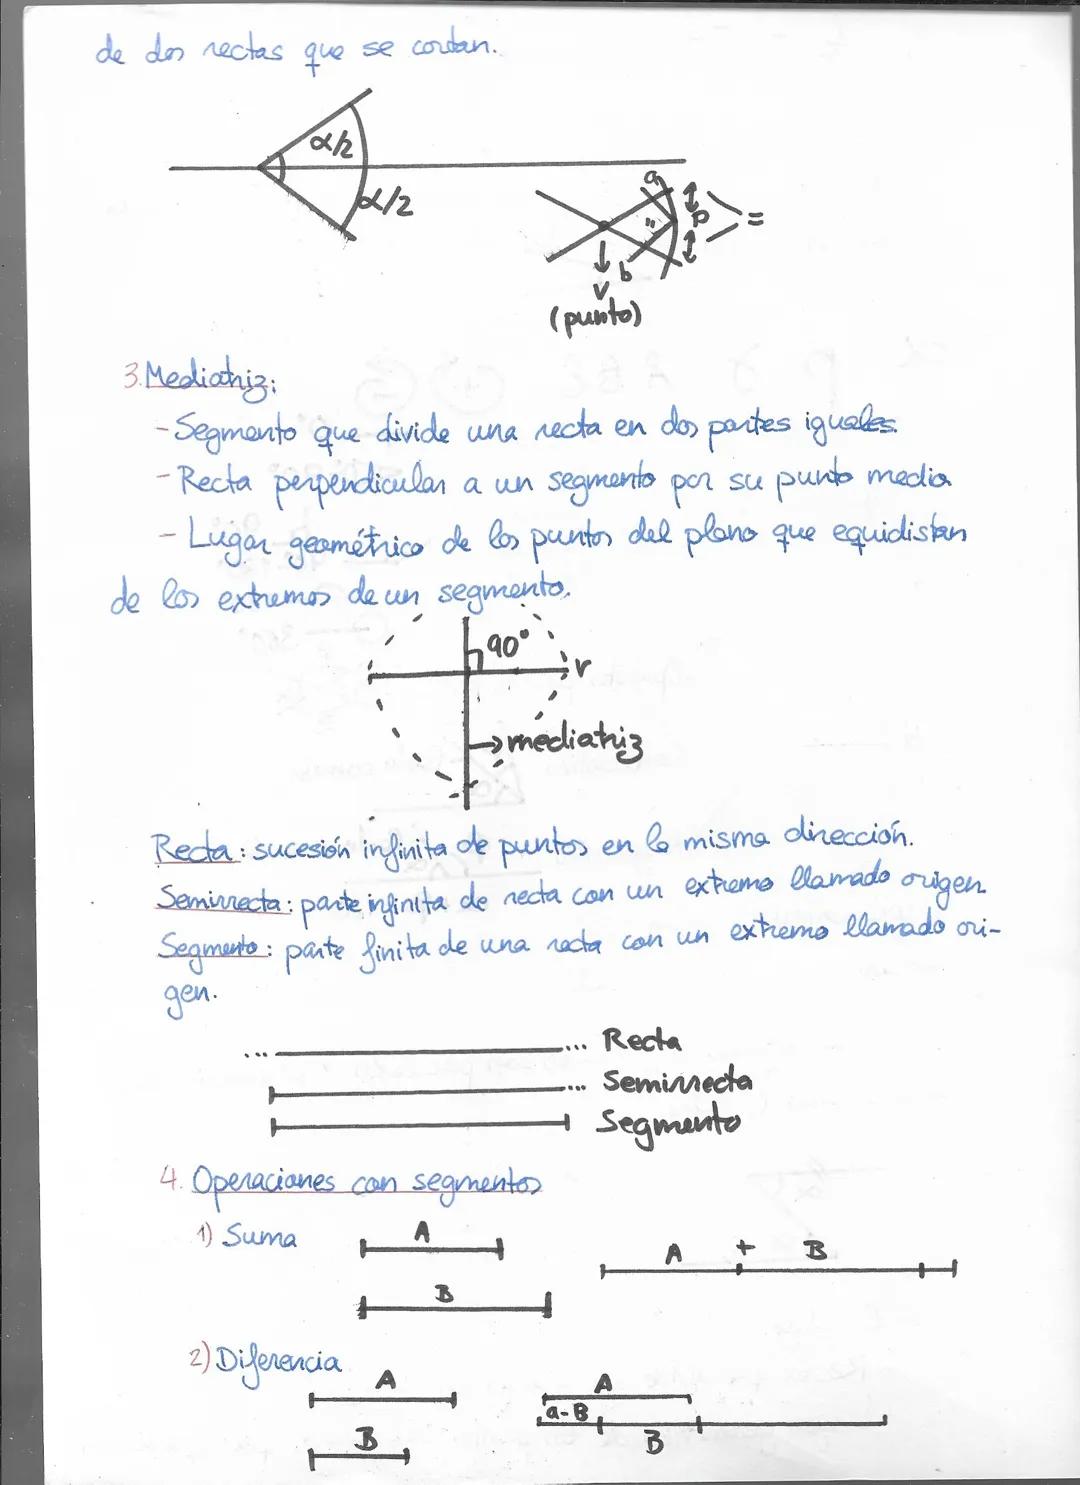 de dos rectas que se cortan.
α/2
α/2
a
"
p
=
b
V
(punto)
3. Mediatriz:
- Segmento que divide una recta en dos partes iguales.
- Recta perpendicular a un segmento por su punto medio
- Lugar geométrico de los puntos del plano que equidistan
de los extremos de un segmento.
90°
r
mediatriz
Recta: sucesión infinita de puntos en la misma dirección.
Semirrecta: parte infinita de recta con un extremo llamado origen.
Segmento: parte finita de una recta con un extremo llamado ori-
gen.
... ... Recta
... Semirrecta
Segmento
4. Operaciones con segmentos
1) Suma
A
B
A + B
2) Diferencia
A
B
A
a-B
B